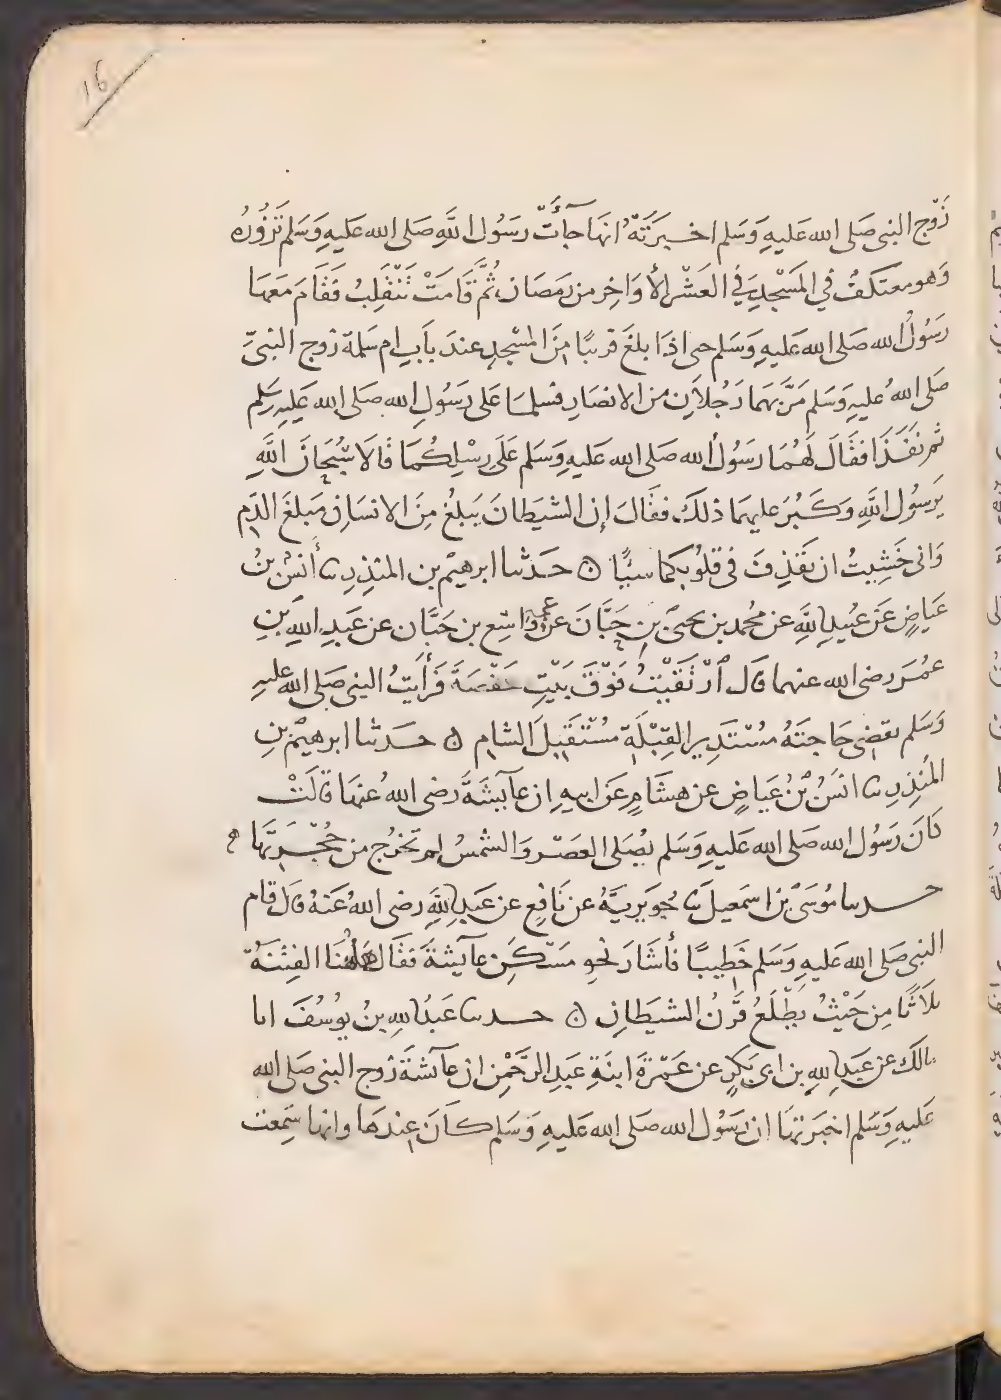 16
زَوْج النبى صَلى الله عَليهِ وَسَلم اخبرَتهُ انهَا جآءَتْ رسَوُل اللَّهِ صَلى الله عَليهِ وَسَلم تَزُوُرُهُ
وَهو معتكفٌ في المَسْجدِ فِي العَشْر الأوَاخِر من رَمضَان ثُمَّ قَامَتْ تَنْقَلِبُ فَقَامَ مَعهَا
رسَوُلُ الله صَلى الله عَليهِ وَسَلم حى اذَا بلغَ قريبًا مِنَ المسْجدِ عندَ بَابِ ام سَلمة زوج النبىّ
صَلى اللهُ عليهِ وَسَلم مَرَّ بهمَا رَجُلاَنِ من الانصَارِ فسلمَا عَلى رَسُولِ الله صَلى الله عَليهِ وسَلم
ثم نفَذَا فقَالَ لَهُمَا رسَوُلُ الله صَلى الله عَليهِ وَسَلم عَلَى رِسْلِكُمَا قَالَا سُبْحَانَ اللَّهِ
يَرسُوُل اللَّهِ وَكَبُرَ عليهمَا ذلكَ فقَالَ إن الشيطَانَ يَبلغُ مِنَ الانسَانِ مَبلغَ الدَم
وَانى خَشِيتُ ان يَقذِفَ فى قلوُبكمَا شيئًا ۞ حَدثنا ابرهيْم بن المنذِر ثنا أَنسْ بنُ
عيَاضٍ عَن عُبَيدِ اللَّهِ عن مُحمد بن يحيَى بن حَبَّانَ عن عمه وَاسِع بن حَبَّان عن عَبدِ اللَّهِ بنِ
عمُرَ رضى الله عنهما قَال ارْتَقَيْتُ فَوْقَ بَيْتِ حَفْصَةَ فَرَأَيتُ النبى صَلى الله عليهِ
وَسَلم يقضِى حَاجتَهُ مسْتَدبِرِ القِبْلَةِ مُسْتَقبِلَ الشام ۞ حَدثنا ابرهيْم بنِ
المُنذِر ثنا انسَُ بْنُ عيَاضٍ عن هشَامٍ عَن ابيهِ ان عآيشَةَ رضى اللهُ عنهَا قَالَتْ
كَانَ رَسُولُ الله صَلى الله عَليهِ وَسَلم يُصَلى العصَر وَالشمسُ لم تخرُج من حُجْرَتهَا
حدثنا مُوسَىْ بن اسمَعيل ثنا جُوَيريَّةُ عن نَافِع عن عَبدِ اللَّهِ رضى اللهُ عَنهُ قَالَ قام
النبى صَلى الله عَليهِ وَسَلم خَطيبًا فأشَارَ نحوِ مسَكَنِ عآيشةَ فقَال هَاهُنَا الفِتْنَةُ
ثلَاثًا مِن حَيْثُ يطْلَعُ قَرْنُ الشيطَانِ ۞ حدثنا عَبدُ اللهِ بنُ يوُسُفَ انا
مالك عن عَبدِ اللهِ بن ابى بَكرٍ عن عَمْرةَ ابنَةِ عَبدِ الرَّحمْنِ ان عآئشةَ زوج النبى صَلى الله
عَليهِ وَسَلم اخبَرتهَا ان رَسُوُل الله صَلى الله عَليهِ وَسَلم كَانَ عِندهَا وانها سَمِعت